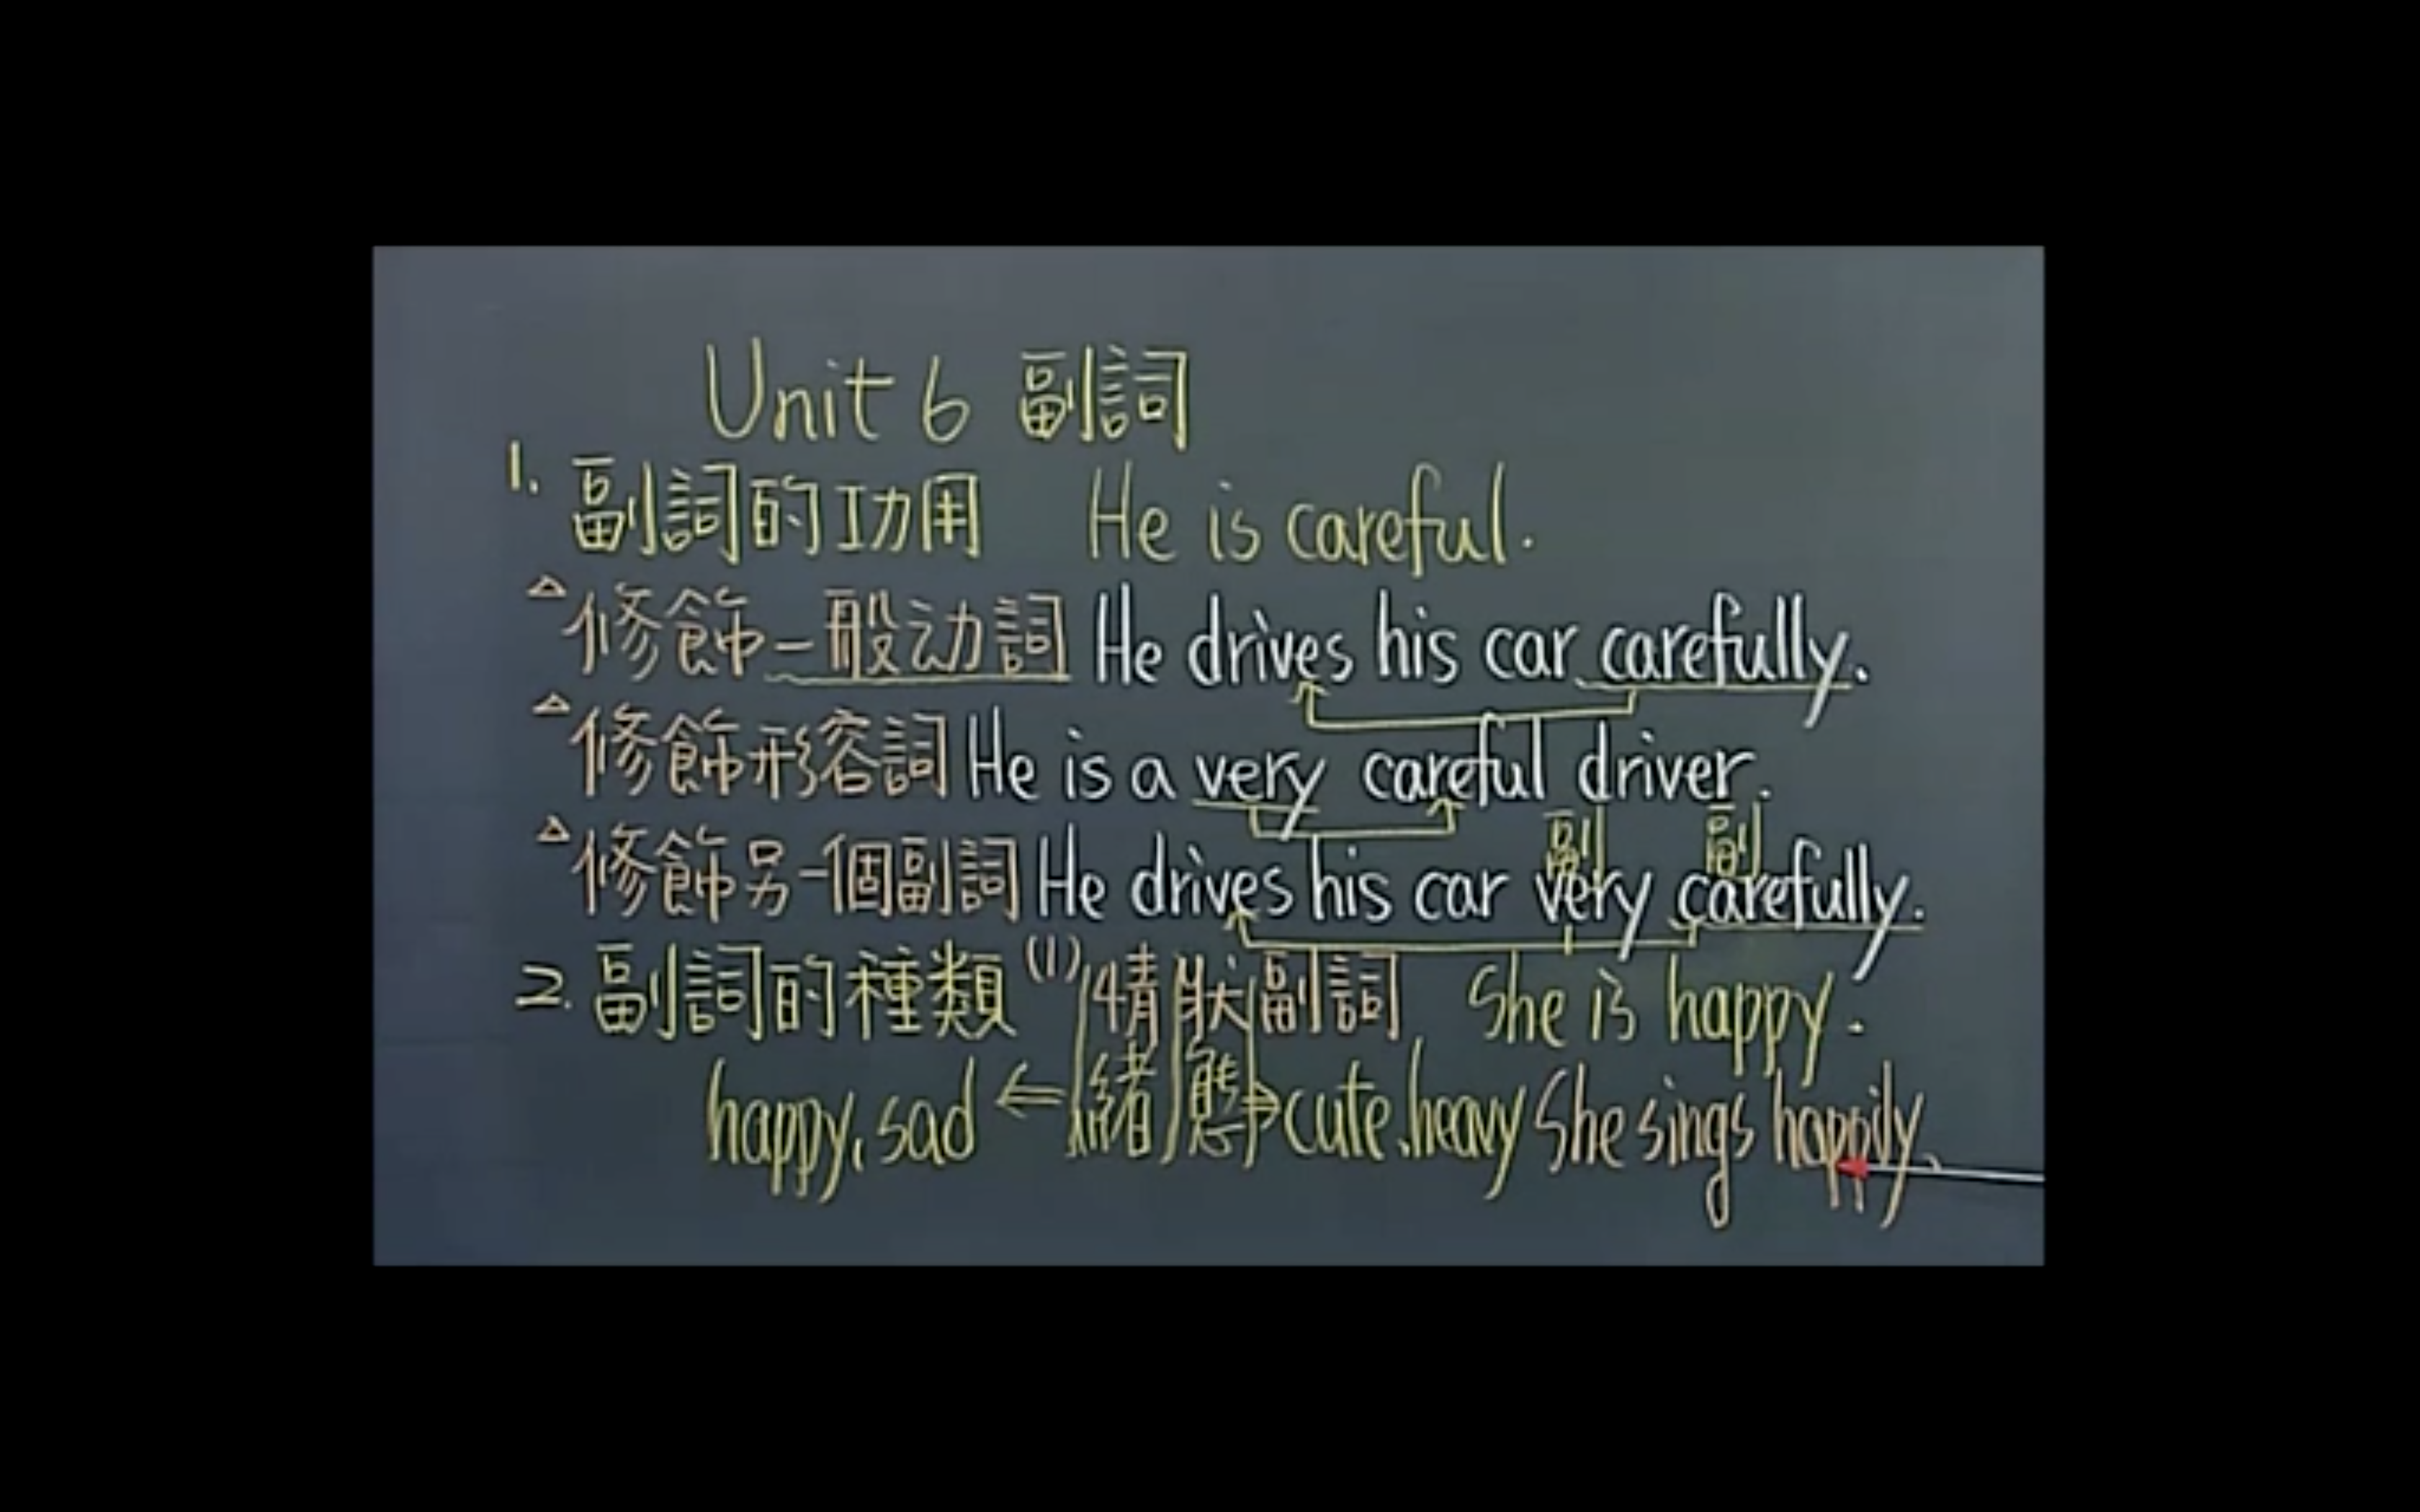 Unit 6 副詞
1. 副詞的功用 He is careful.
△修飾一般动詞 He drives his car carefully.
△修飾形容詞 He is a very careful driver.
副 副
△修飾另一個副詞 He drives his car very carefully.
2. 副詞的種類 (1) 情狀副詞 She is happy.
happy, sad ⇐ 緒 態 ⇒ cute, heavy She sings happily.